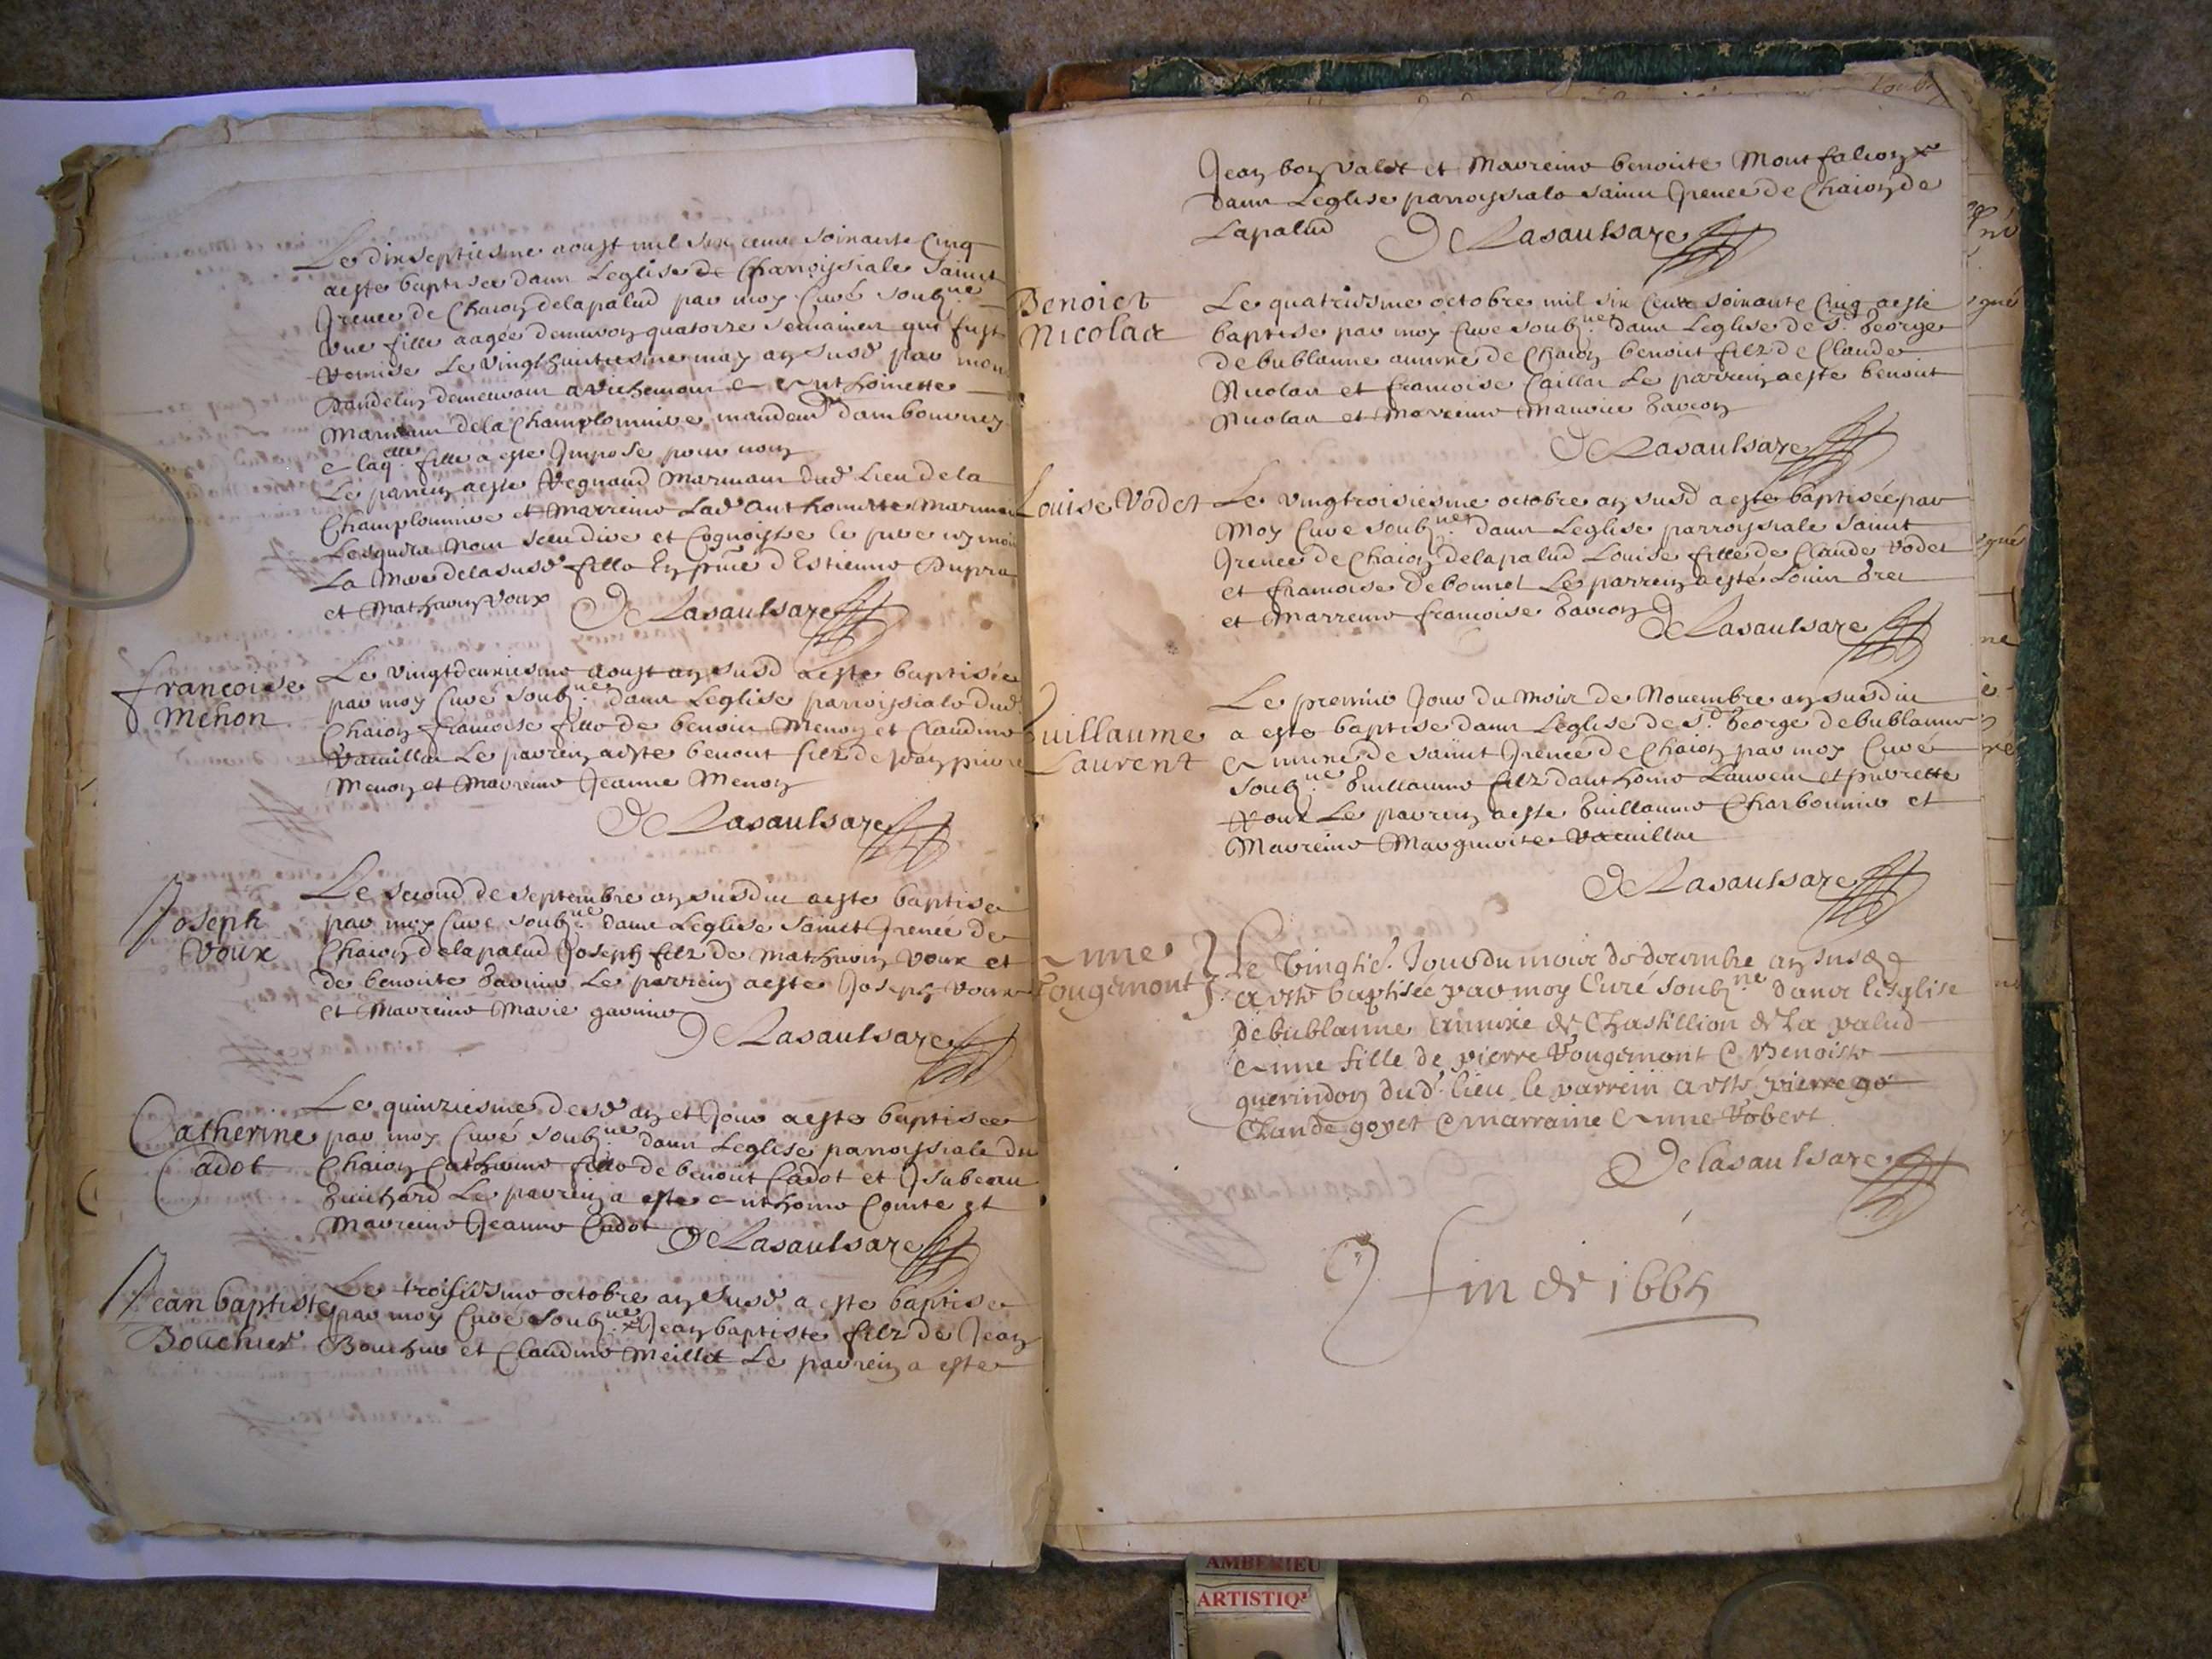 Le dixseptiesme aoust mil six cens soixante Cinq
a este baptisée dans Leglise parroissiale Sainct
Irenee de Chaion delapalud par moy Curé soubz.ne
Vne fille aagée denuiron quatorze semaines qui fust
Le vingthuictiesme may an susd par
demeurant a et Anthoinette
dela Champlonniere mandem.t dambournay
a laq.elle fille a este Imposé pour nom
Le parrein a este Regnaud Marmam dud Lieu dela
Champlonniere et marreine Lad Anthoinette
Lesquels nont sceu dire et Cognoistre le pere
La Mere delasusd fille En pnce d'Estienne Dupra
et Mathurin Voux DeLasaulsaye
Francoise
Menon
Le vingtdeuxiesme aoust an susd a este baptisée
par moy Curé soubz.ne dans Leglise parroissiale dud
Chaion francoise fille de benoist Menon et Claudine
Vacuillat Le parrein a este benoist filz de Jean pierre
Menon et Marreine Jeanne Menon
DeLasaulsaye
Joseph
Voux
Le second de septembre an susdict a este baptise
par moy Curé soubz.ne dans Leglise Sainct Irenée de
Chaion delapalud Joseph filz de Mathurin Voux et
de benoiste Le parrein a este Joseph Voux
et Marreine Marie
DeLasaulsaye
Catherine
Cadot
Le quinziesme desd an et Jour a este baptisée
par moy Curé soubz.ne dans Leglise parroissiale du
Chaion Catherine fille de benoist Cadot et Isabeau
Guichard Le parrein a este Anthoine Comte et
Marreine Jeanne Cadot DeLasaulsaye
Jean baptiste
Bouchier
Le troisiesme octobre an susd a este baptise
par moy Curé soubz.ne Jean baptiste filz de Jean
Bouchier et Claudine Meillet Le parrein a este
Jean bon et Marreine benoiste Montfalcon
dans Leglise parroissiale sainct Irenee de Chaion de
Lapalud DeLasaulsaye
Benoict
Nicolas
Le quatriesme octobre mil six Cens soixante Cinq a este
baptise par moy Curé soubz.ne dans Leglise de St George
de bublanne annexe de Chaion benoist filz de Claude
Nicolas et francoise Caillat Le parrein a este benoist
Nicolas et Marreine Maurice
DeLasaulsaye
Louise Vodet
Le vingtroisiesme octobre an susd a este baptisée par
Moy Curé soubz.ne dans Leglise parroissiale Sainct
Irenee de Chaion delapalud Louise fille de Claude Vodet
et francoise debonnet Le parrein a esté Louis
et Marreine francoise DeLasaulsaye
Guillaume
Laurent
Le premier Jour du Moix de Nouembre an susdict
a este baptise dans Leglise de St George debublanne
annexe de sainct Irenee de Chaion par moy Curé
soubz.ne Guillaume filz danthoine Laurent et pierrette
Voux Le parrein a este Guillaume Charbonnier et
Marreine Marguerite Vacuillat
DeLasaulsaye
Anne
Rougémont
Le Vingtie. Jour du moix de decembre an susd
a este baptisée par moy Curé soubz.ne dans leglise
de bublanne annexe de Chastillion de La palud
Anne fille de pierre Rougémont & Benoiste
guerindon dud. lieu le parrein a este pierre go
Claude goyet & marraine Anne Robert
Delasaulsaye
fin de 1665
AMBERIEU
ARTISTIQU